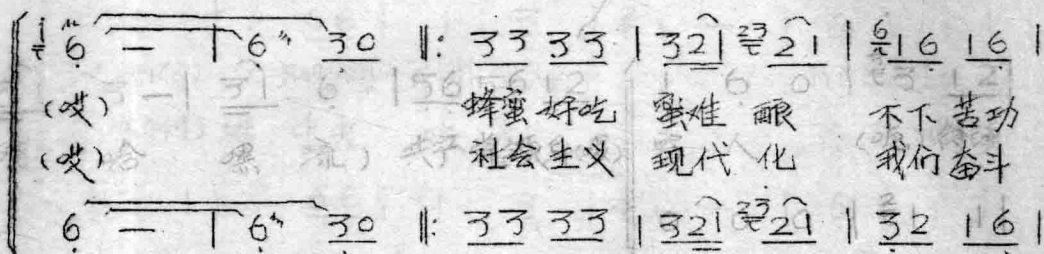 6 — | 6 30 ‖: 33 33 | 321 23 21 | 6 16 16 |
(哎) 蜂蜜好吃 蜜难 酿 不下苦功
(哎) 社会主义 现代 化 我们奋斗
6 — | 6 30 ‖: 33 33 | 321 23 21 | 32 16 |